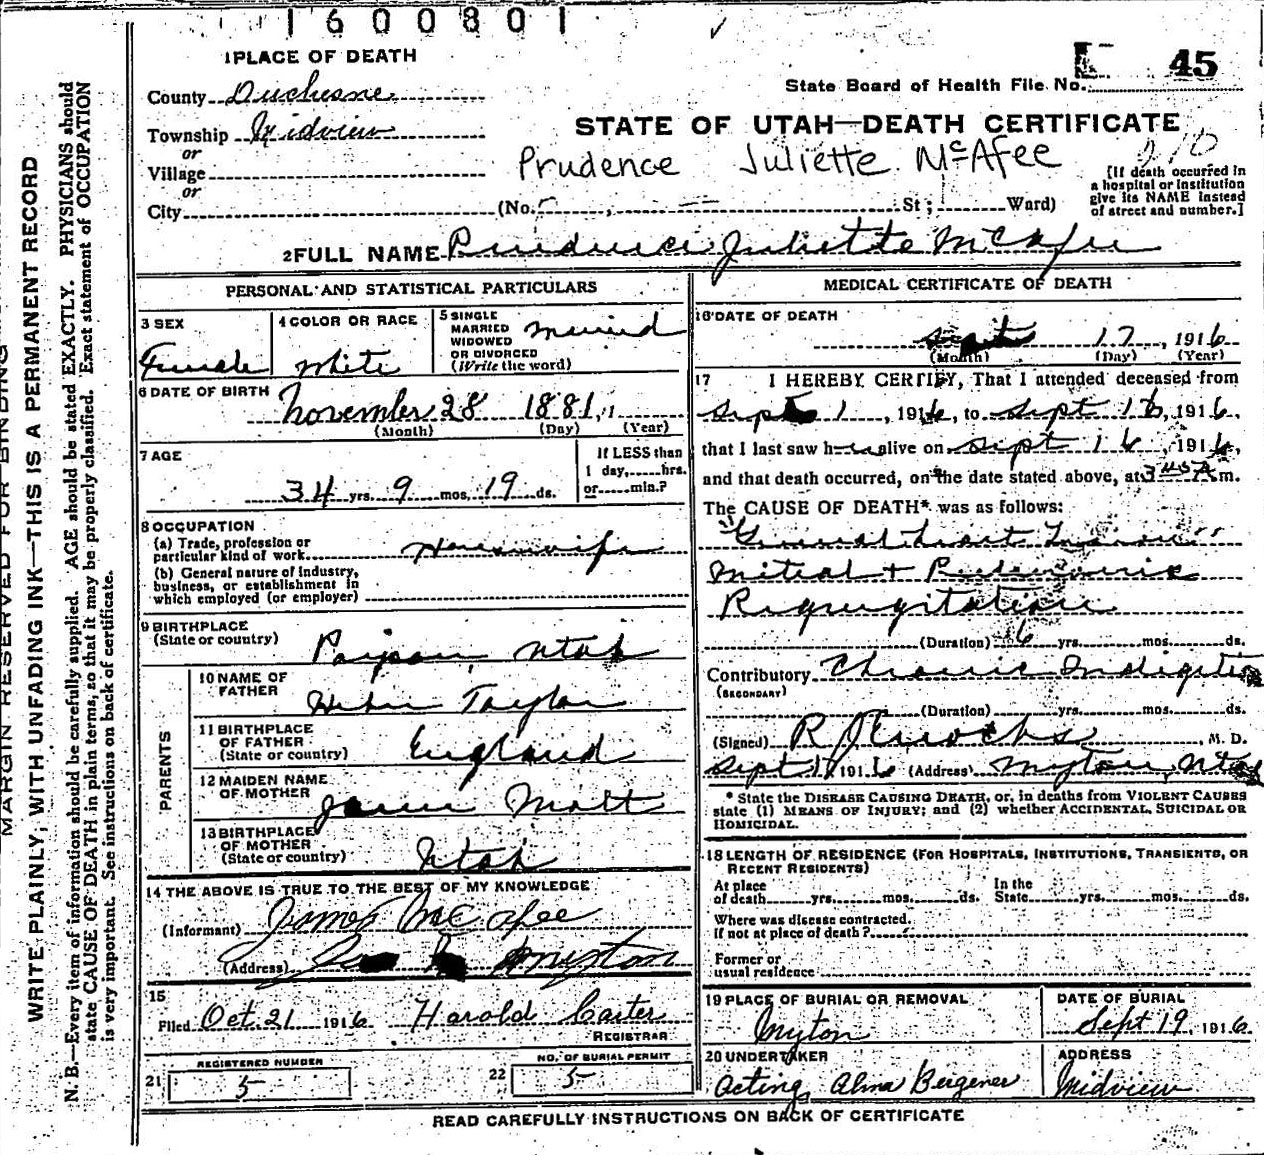 1600801
1 PLACE OF DEATH
County Duchesne
Township Midview
or
Village
or
City (No. , St; Ward)
State Board of Health File No. 45
STATE OF UTAH—DEATH CERTIFICATE
Prudence Juliette McAfee
210
[If death occurred in
a hospital or institution
give its NAME instead
of street and number.]
2 FULL NAME Prudence Juliette McAfee
PERSONAL AND STATISTICAL PARTICULARS
3 SEX
Female
4 COLOR OR RACE
White
5 SINGLE
MARRIED
WIDOWED
OR DIVORCED
(Write the word)
Married
6 DATE OF BIRTH
November 28 1881
(Month) (Day) (Year)
7 AGE
34 yrs. 9 mos. 19 ds.
If LESS than
1 day, hrs.
or min.?
8 OCCUPATION
(a) Trade, profession or
particular kind of work Housewife
(b) General nature of industry,
business, or establishment in
which employed (or employer)
9 BIRTHPLACE
(State or country)
Payson, Utah
PARENTS
10 NAME OF
FATHER
Taylor
11 BIRTHPLACE
OF FATHER
(State or country)
England
12 MAIDEN NAME
OF MOTHER
Mott
13 BIRTHPLACE
OF MOTHER
(State or country)
Utah
14 THE ABOVE IS TRUE TO THE BEST OF MY KNOWLEDGE
(Informant) James McAfee
(Address) Myton
15
Filed Oct. 21 1916 Harold Carter
REGISTRAR
REGISTERED NUMBER
21 5
NO. OF BURIAL PERMIT
22 5
MEDICAL CERTIFICATE OF DEATH
16 DATE OF DEATH
Sept 17, 1916
(Month) (Day) (Year)
17 I HEREBY CERTIFY, That I attended deceased from
Sept 1, 1916, to Sept 16, 1916,
that I last saw her alive on Sept 16, 1916,
and that death occurred, on the date stated above, at 3 45 A m.
The CAUSE OF DEATH* was as follows:
General Heart
Mitral +
Regurgitation
(Duration) 16 yrs. mos. ds.
Contributory Chronic Indigestion
(SECONDARY)
(Duration) yrs. mos. ds.
(Signed) R J Enochs, M. D.
Sept 1916 (Address) Myton, Utah
* State the DISEASE CAUSING DEATH, or, in deaths from VIOLENT CAUSES
state (1) MEANS OF INJURY; and (2) whether ACCIDENTAL, SUICIDAL OR
HOMICIDAL.
18 LENGTH OF RESIDENCE (FOR HOSPITALS, INSTITUTIONS, TRANSIENTS, OR
RECENT RESIDENTS)
At place
of death yrs. mos. ds.
In the
State yrs. mos. ds.
Where was disease contracted.
If not at place of death?
Former or
usual residence
19 PLACE OF BURIAL OR REMOVAL
Myton
DATE OF BURIAL
Sept 19, 1916
20 UNDERTAKER
Acting, Alma Bergener
ADDRESS
Midview
READ CAREFULLY INSTRUCTIONS ON BACK OF CERTIFICATE
MARGIN RESERVED FOR BINDING
WRITE PLAINLY, WITH UNFADING INK—THIS IS A PERMANENT RECORD
N. B.—Every item of information should be carefully supplied. AGE should be stated EXACTLY. PHYSICIANS should
state CAUSE OF DEATH in plain terms, so that it may be properly classified. Exact statement of OCCUPATION
is very important. See instructions on back of certificate.